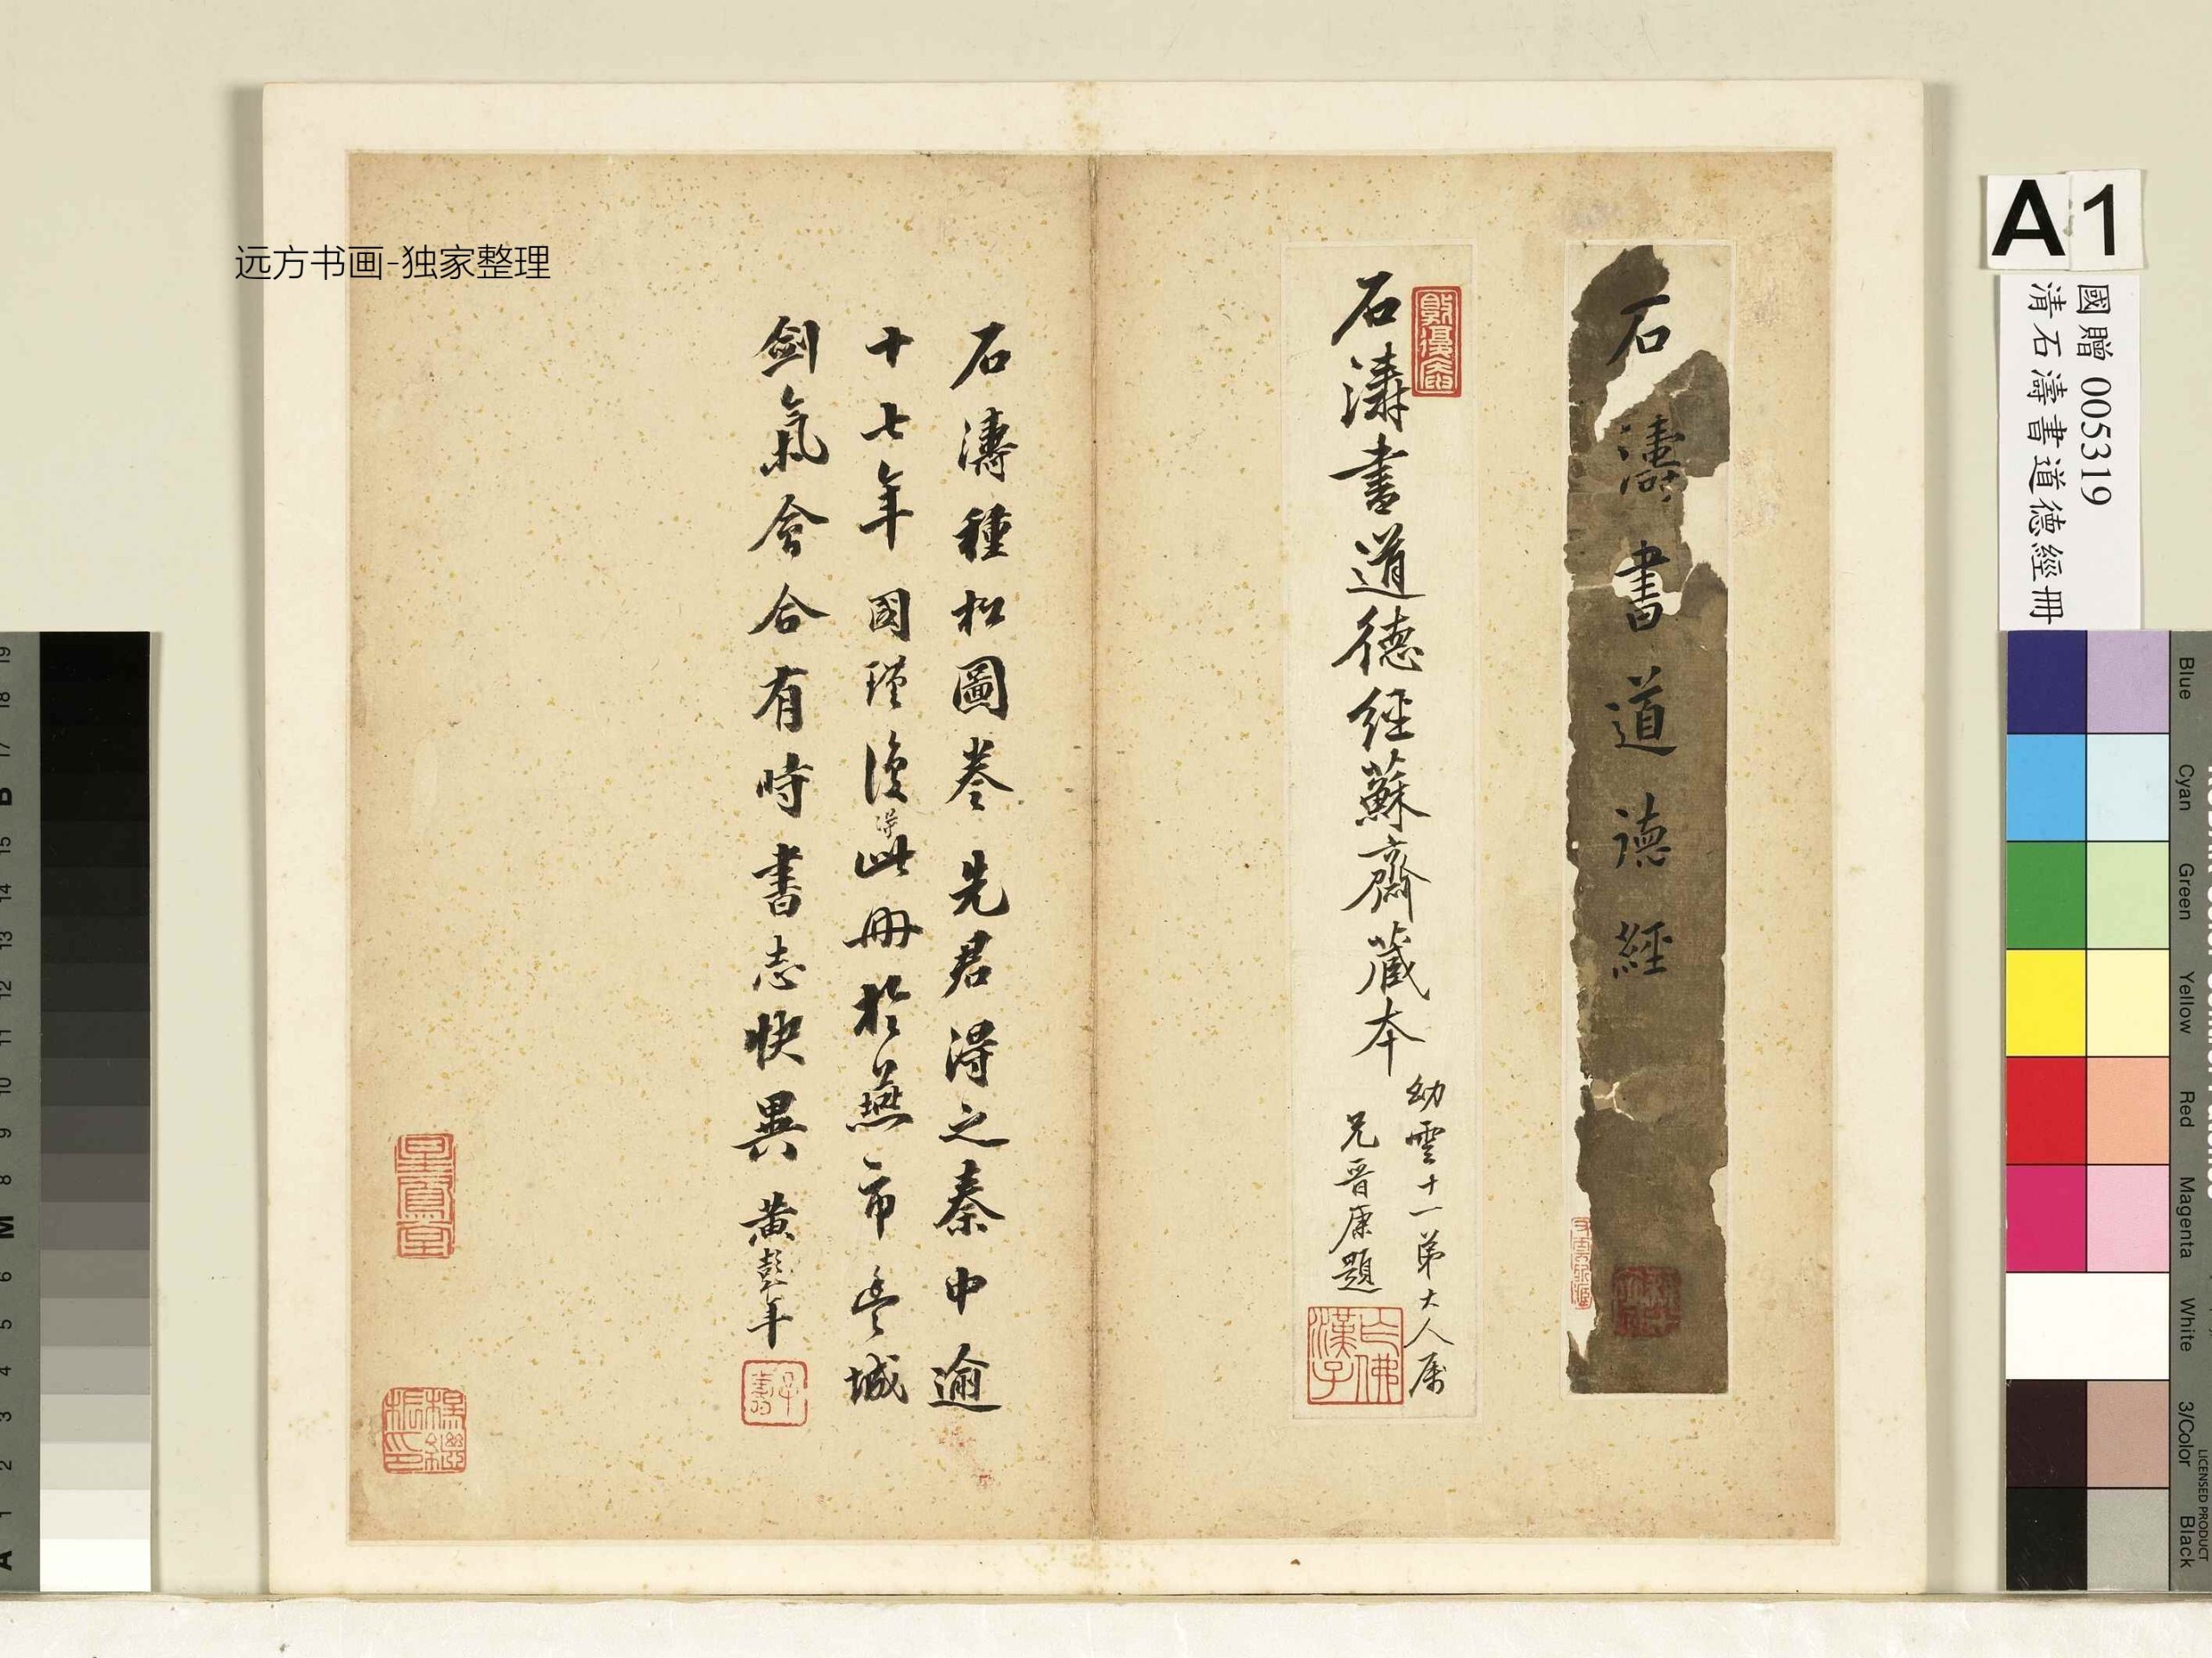 石濤書道德經
石濤書道德經蘇齋藏本
幼雲十一弟大人属
兄晋康題
石濤種松圖卷先君得之秦中逾
十七年國瑾復得此冊於燕市豐城
劍氣會合有時書志快異 黃彭年
子壽
远方书画-独家整理
A1
國贈 005319
清石濤書道德經冊
Blue
Cyan
Green
Yellow
Red
Magenta
White
3/Color
Black
LICENSED PRODUCT
19
18
17
B
15
14
13
12
11
10
9
8
M
6
5
4
3
2
1
A